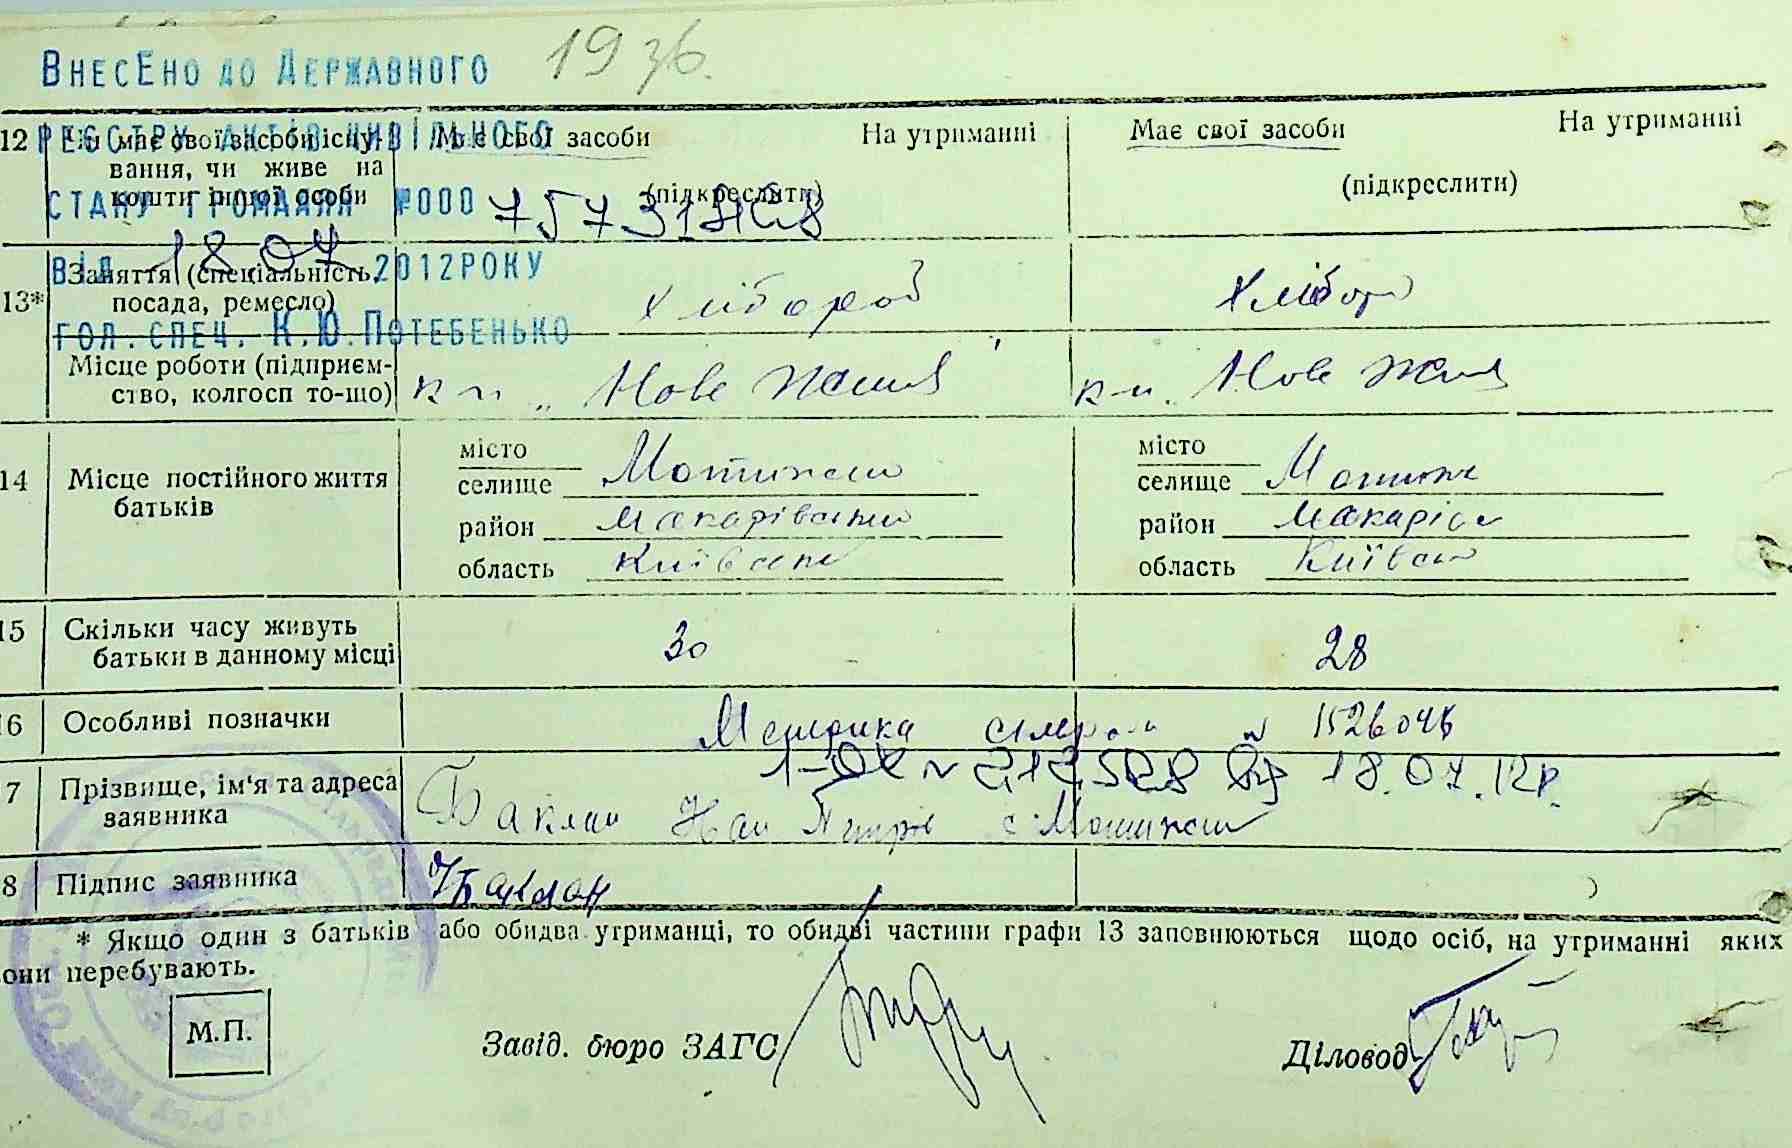 19 36.
ВНЕСЕНО ДО ДЕРЖАВНОГО
РЕЄСТРУ АКТІВ ЦИВІЛЬНОГО
СТАНУ ГРОМАДЯН №000
ВІД 18.07.2012РОКУ
ГОЛ.СПЕЦ. К.Ю.ПОТЕБЕНЬКО
12 Чи має свої засоби існу-
вання, чи живе на
кошти іншої особи
Має свої засоби На утриманні
(підкреслити)
Має свої засоби На утриманні
(підкреслити)
13* Заняття (спеціальність,
посада, ремесло)
Хлібороб
Хлібор
Місце роботи (підприєм-
ство, колгосп то-що)
к-п „ Нове Життя
к-п. Нове Життя
14 Місце постійного життя
батьків
місто
селище Мотижин
район Макарівський
область Київська
місто
селище Мотиж
район Макарів
область Київськ
15 Скільки часу живуть
батьки в данному місці
30
28
16 Особливі позначки
Метрика № 1526046
18.07.12р.
17 Прізвище, ім'я та адреса
заявника
Баклан с. Мотижин
18 Підпис заявника
Баклан
* Якщо один з батьків або обидва утриманці, то обидві частини графи 13 заповнюються щодо осіб, на утриманні яких
вони перебувають.
М.П.
Завід. бюро ЗАГС
Діловод